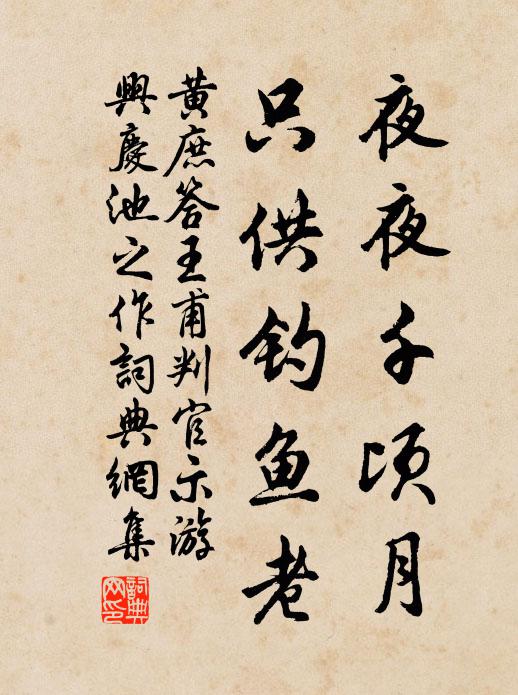 夜夜千顷月
只供钓鱼老
黄庶答王甫判官示游
興慶池之作詞典網集